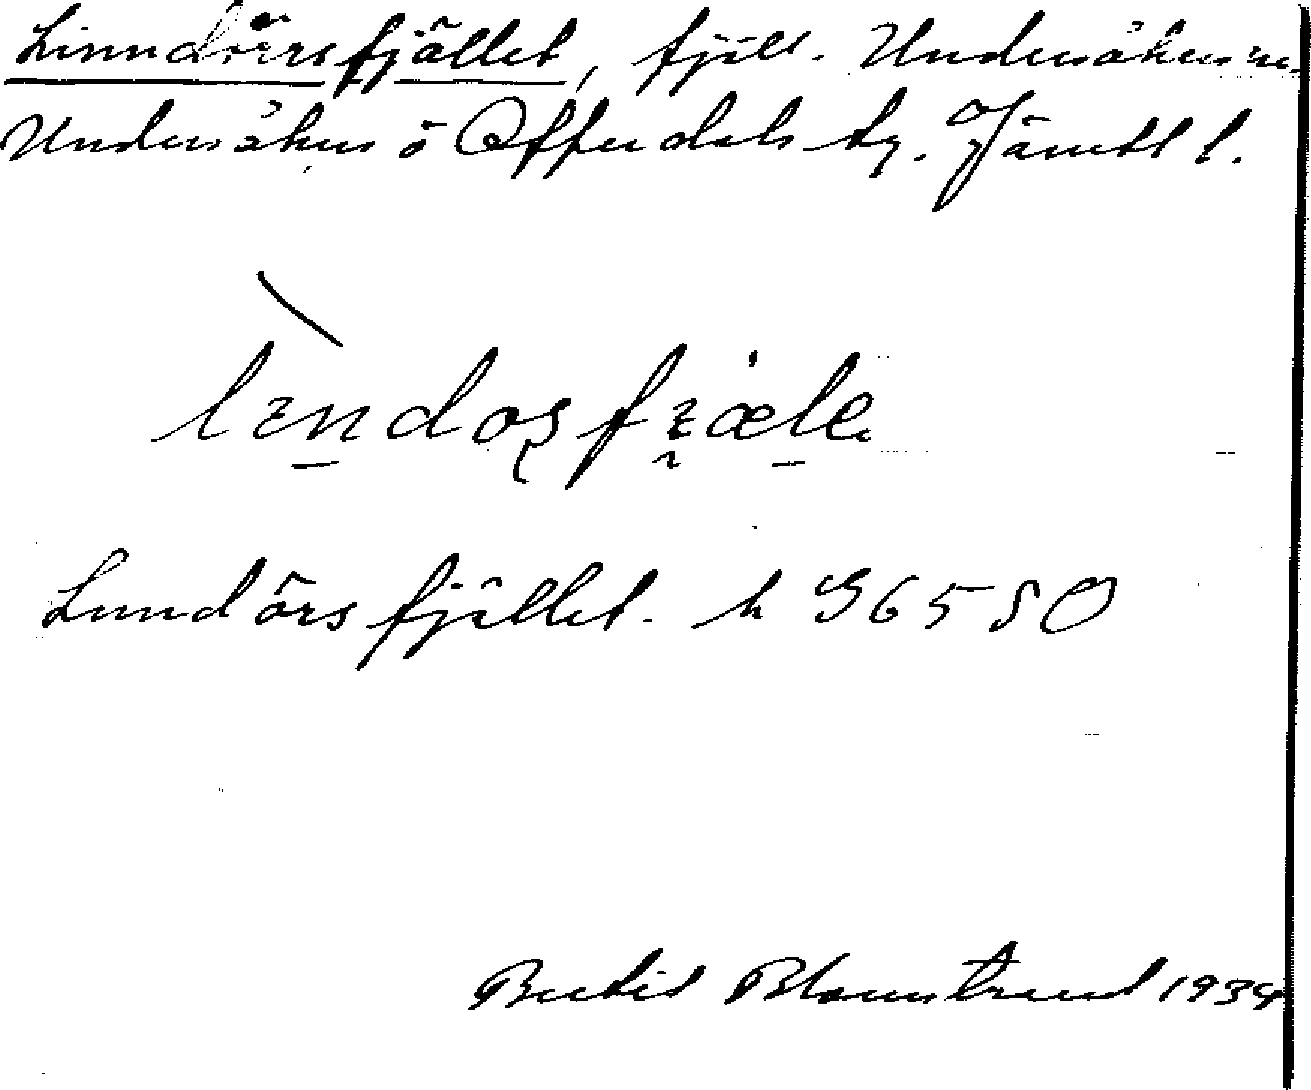 Linndörrsfjället, fjäll. Undersåkers sn.
Undersåkers o Offerdals tg. Jämtl l.
lɪndoʂfɪ̯æle
Lundörsfjället. k G6550
Bertil Blomstrand 1934